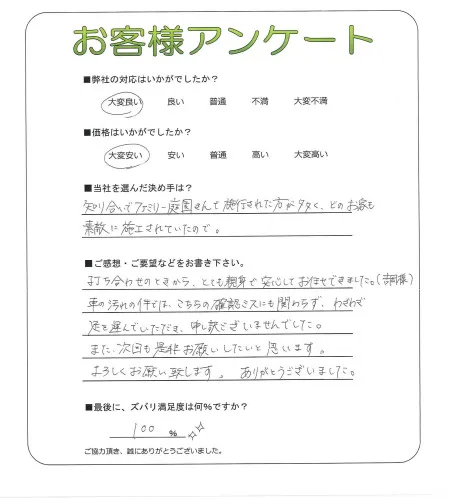 お客様アンケート
■弊社の対応はいかがでしたか?
大変良い 良い 普通 不満 大変不満
■価格はいかがでしたか?
大変安い 安い 普通 高い 大変高い
■当社を選んだ決め手は?
知り合いでファミリー庭園さんで施行された方が多く、どのお家も
素敵に施工されていたので。
■ご感想・ご要望などをお書き下さい。
打ち合わせのときから、とても親身で安心してお任せできました。(
車の汚れの件では、こちらの確認ミスにも関わらず、わざわざ
足を運んでいただき、申し訳ございませんでした。
また、次回も是非お願いしたいと思います。
よろしくお願い致します。 ありがとうございました。
■最後に、ズバリ満足度は何%ですか?
100 %
ご協力頂き、誠にありがとうございました。